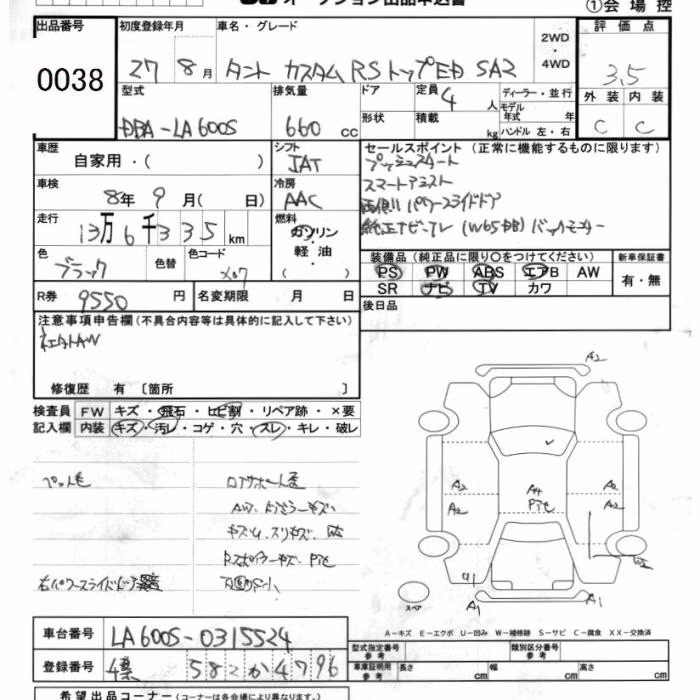 オークション出品申込書
①会場控
出品番号
0038
初度登録年月
車名・グレード
2WD
・
4WD
27 8月 タント カスタムRSトップED SA2
評価点
3.5
外装 内装
C C
型式
DBA-LA600S
排気量
660 cc
ドア
形状
定員 4 人
積載 kg
ディーラー・並行
モデル
年式 年
ハンドル 左・右
車歴
自家用・( )
シフト
IAT
セールスポイント (正常に機能するものに限ります)
プッシュスタート
スマートアシスト
両側パワースライドドア
純正ナビ・TV (W65DB) バックモニター
車検
8年 9月( 日)
冷房
AAC
走行
13万6千335 km
燃料
ガソリン
軽油・
( )
色
ブラック
色替
色コード
X07
装備品 (純正品に限り〇をつけてください)
PS PW ABS エアB AW
SR ナビ TV カワ
新車保証書
有・無
R券 9550 円
名変期限 月 日
後日品
注意事項申告欄 (不具合内容等は具体的に記入して下さい)
社外AW
修復歴 有 〔箇所 〕
検査員
記入欄
FW キズ・飛石・ヒビ割・リペア跡・×要
内装 キズ・汚レ・コゲ・穴・スレ・キレ・破レ
ペット毛
A2
A2 A2
A2 A2
U1
A1 A1
スペア
A-キズ E-エクボ U-凹み W-補修跡 S-サビ C-腐食 XX-交換済
車台番号 LA600S-0315524
登録番号 582 か 4796
型式指定番号
参考
類別区分番号
参考
車庫証明用
参考
長さ cm 幅 cm 高さ cm
希望出品コーナー (コーナーは各会場により異なります。)